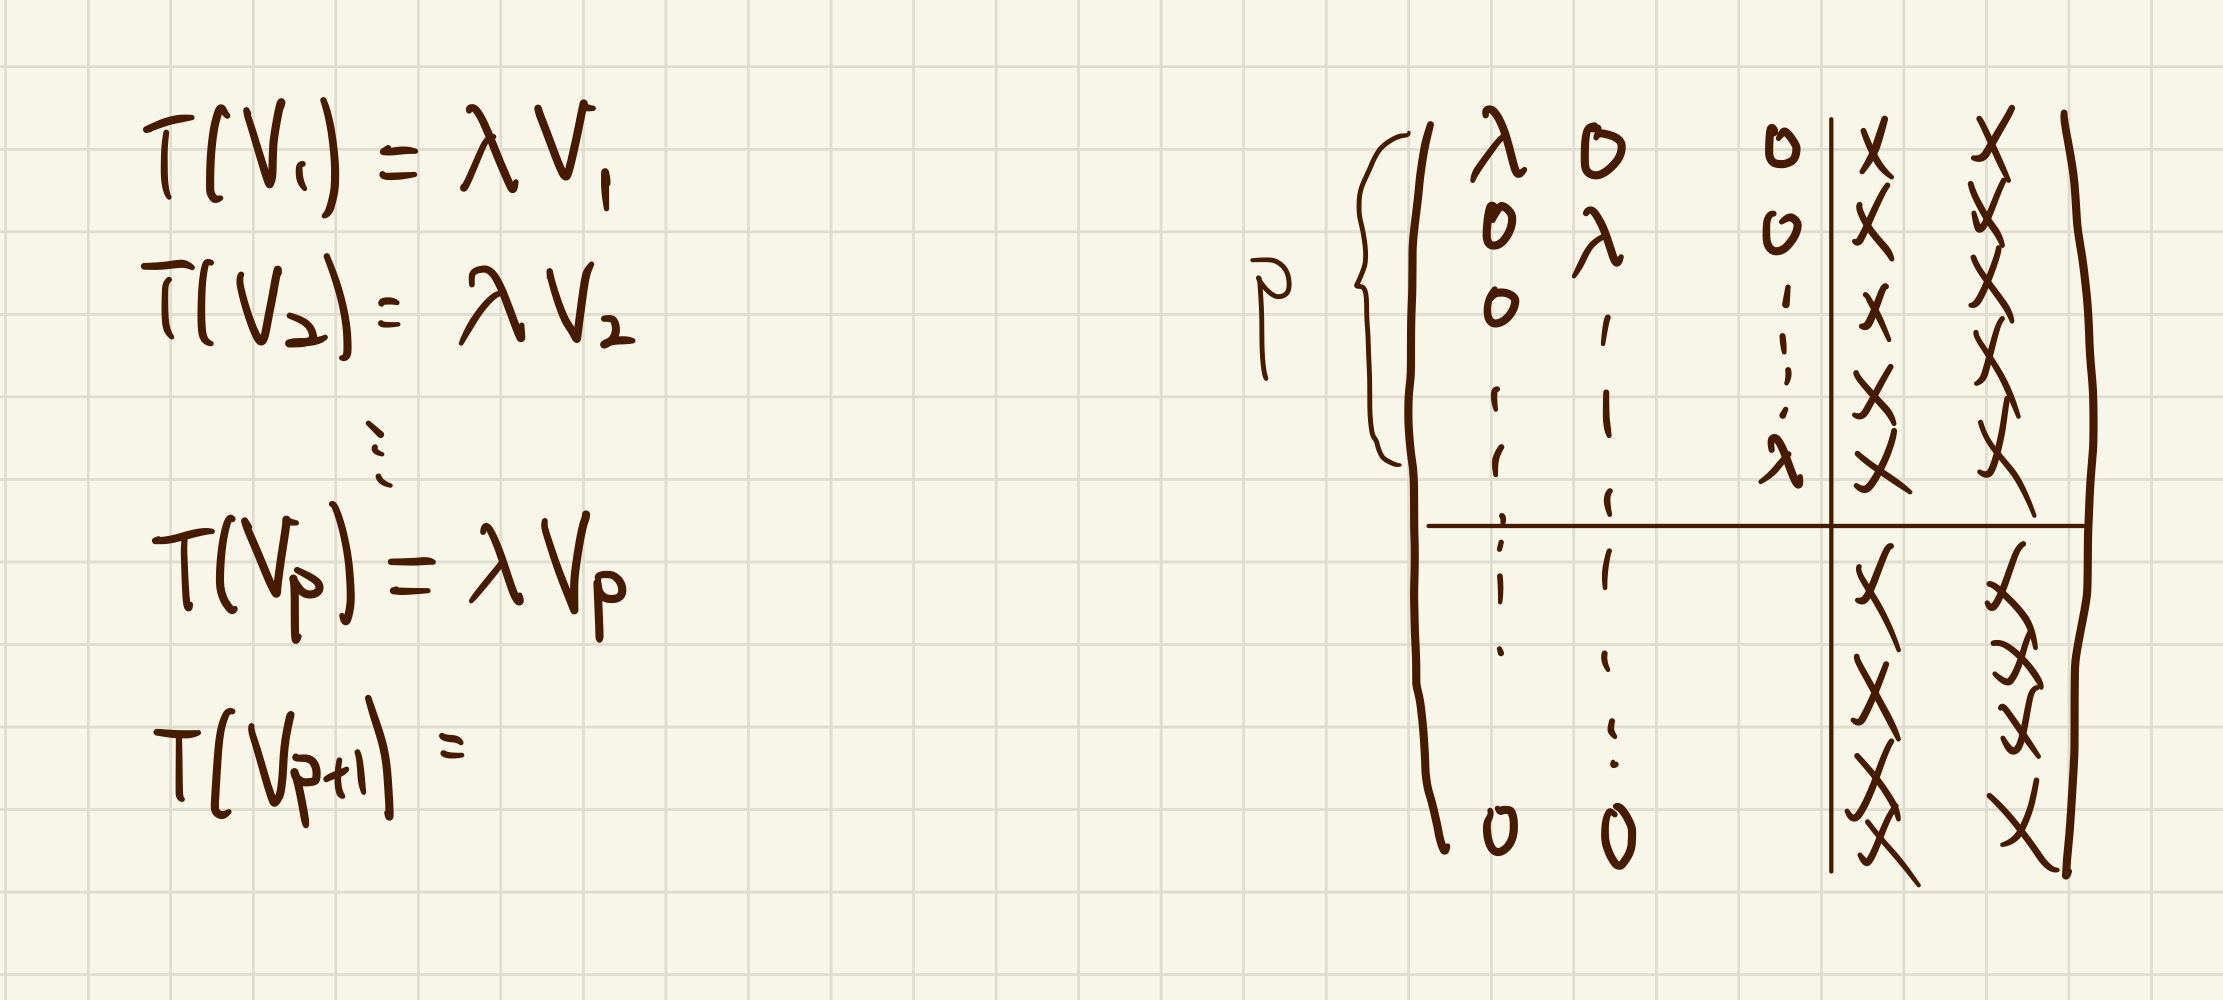 T(V₁) = λV₁
T(V₂) = λV₂
⋮
T(Vₚ) = λVₚ
T(Vₚ₊₁) =
P
λ 0 0 X X
0 λ 0 X X
0 ¦ ¦ X X
¦ ¦ ¦ X X
¦ ¦ λ X X
¦ ¦ X X
¦ ¦ X X
¦ X X
0 0 X X